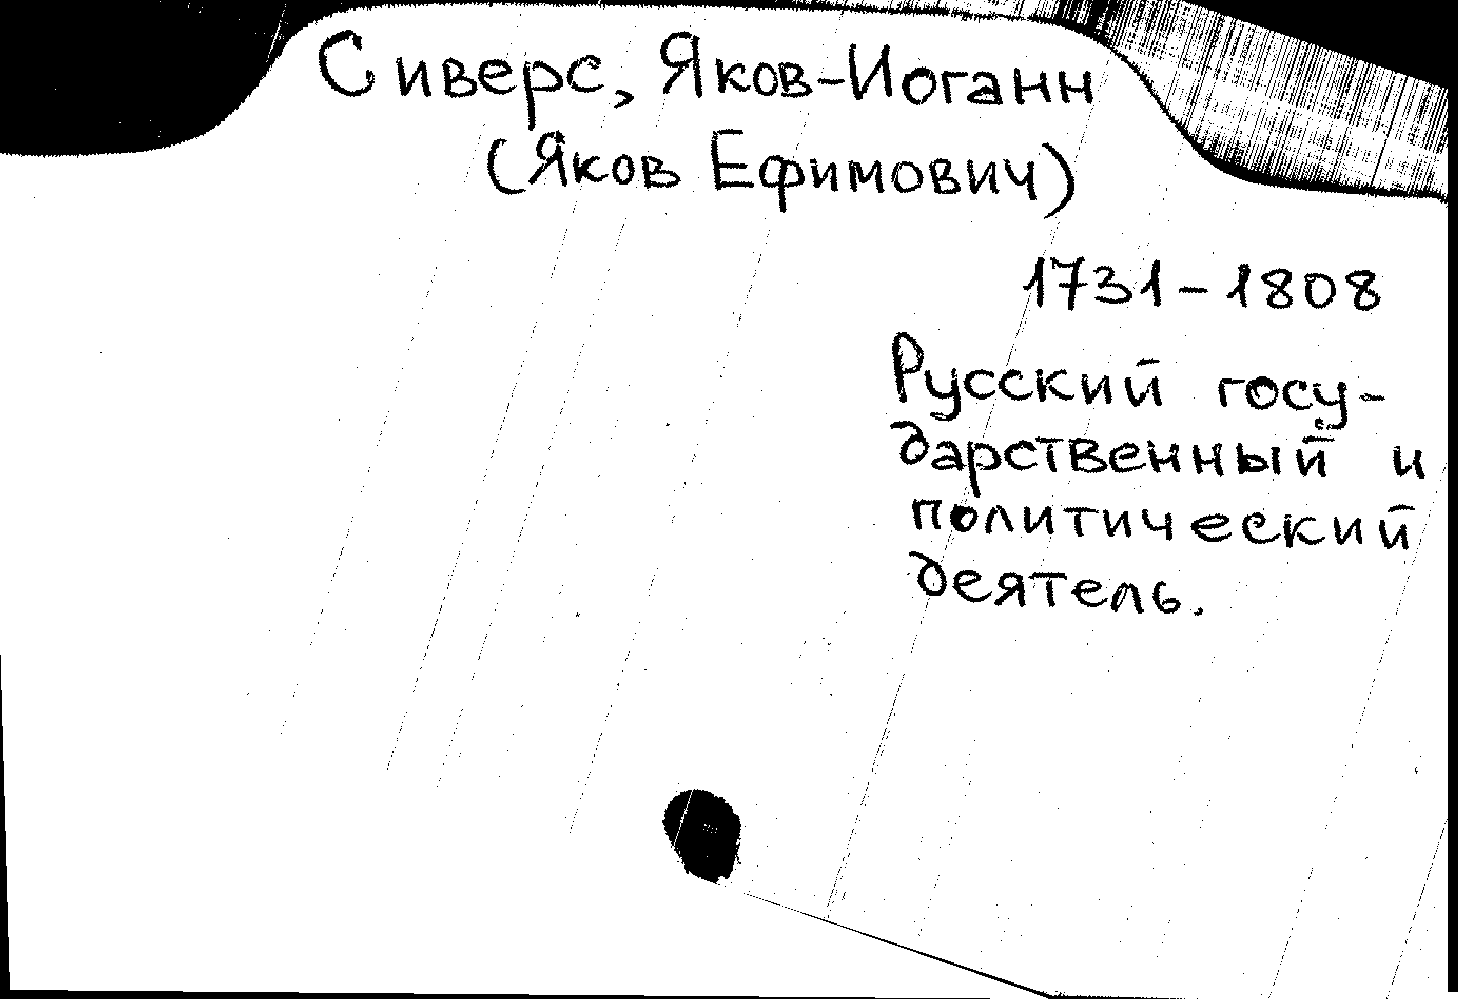 Сиверс, Яков-Иоганн
(Яков Ефимович)
1731-1808
Русский госу-
дарственный и
политический
деятель.